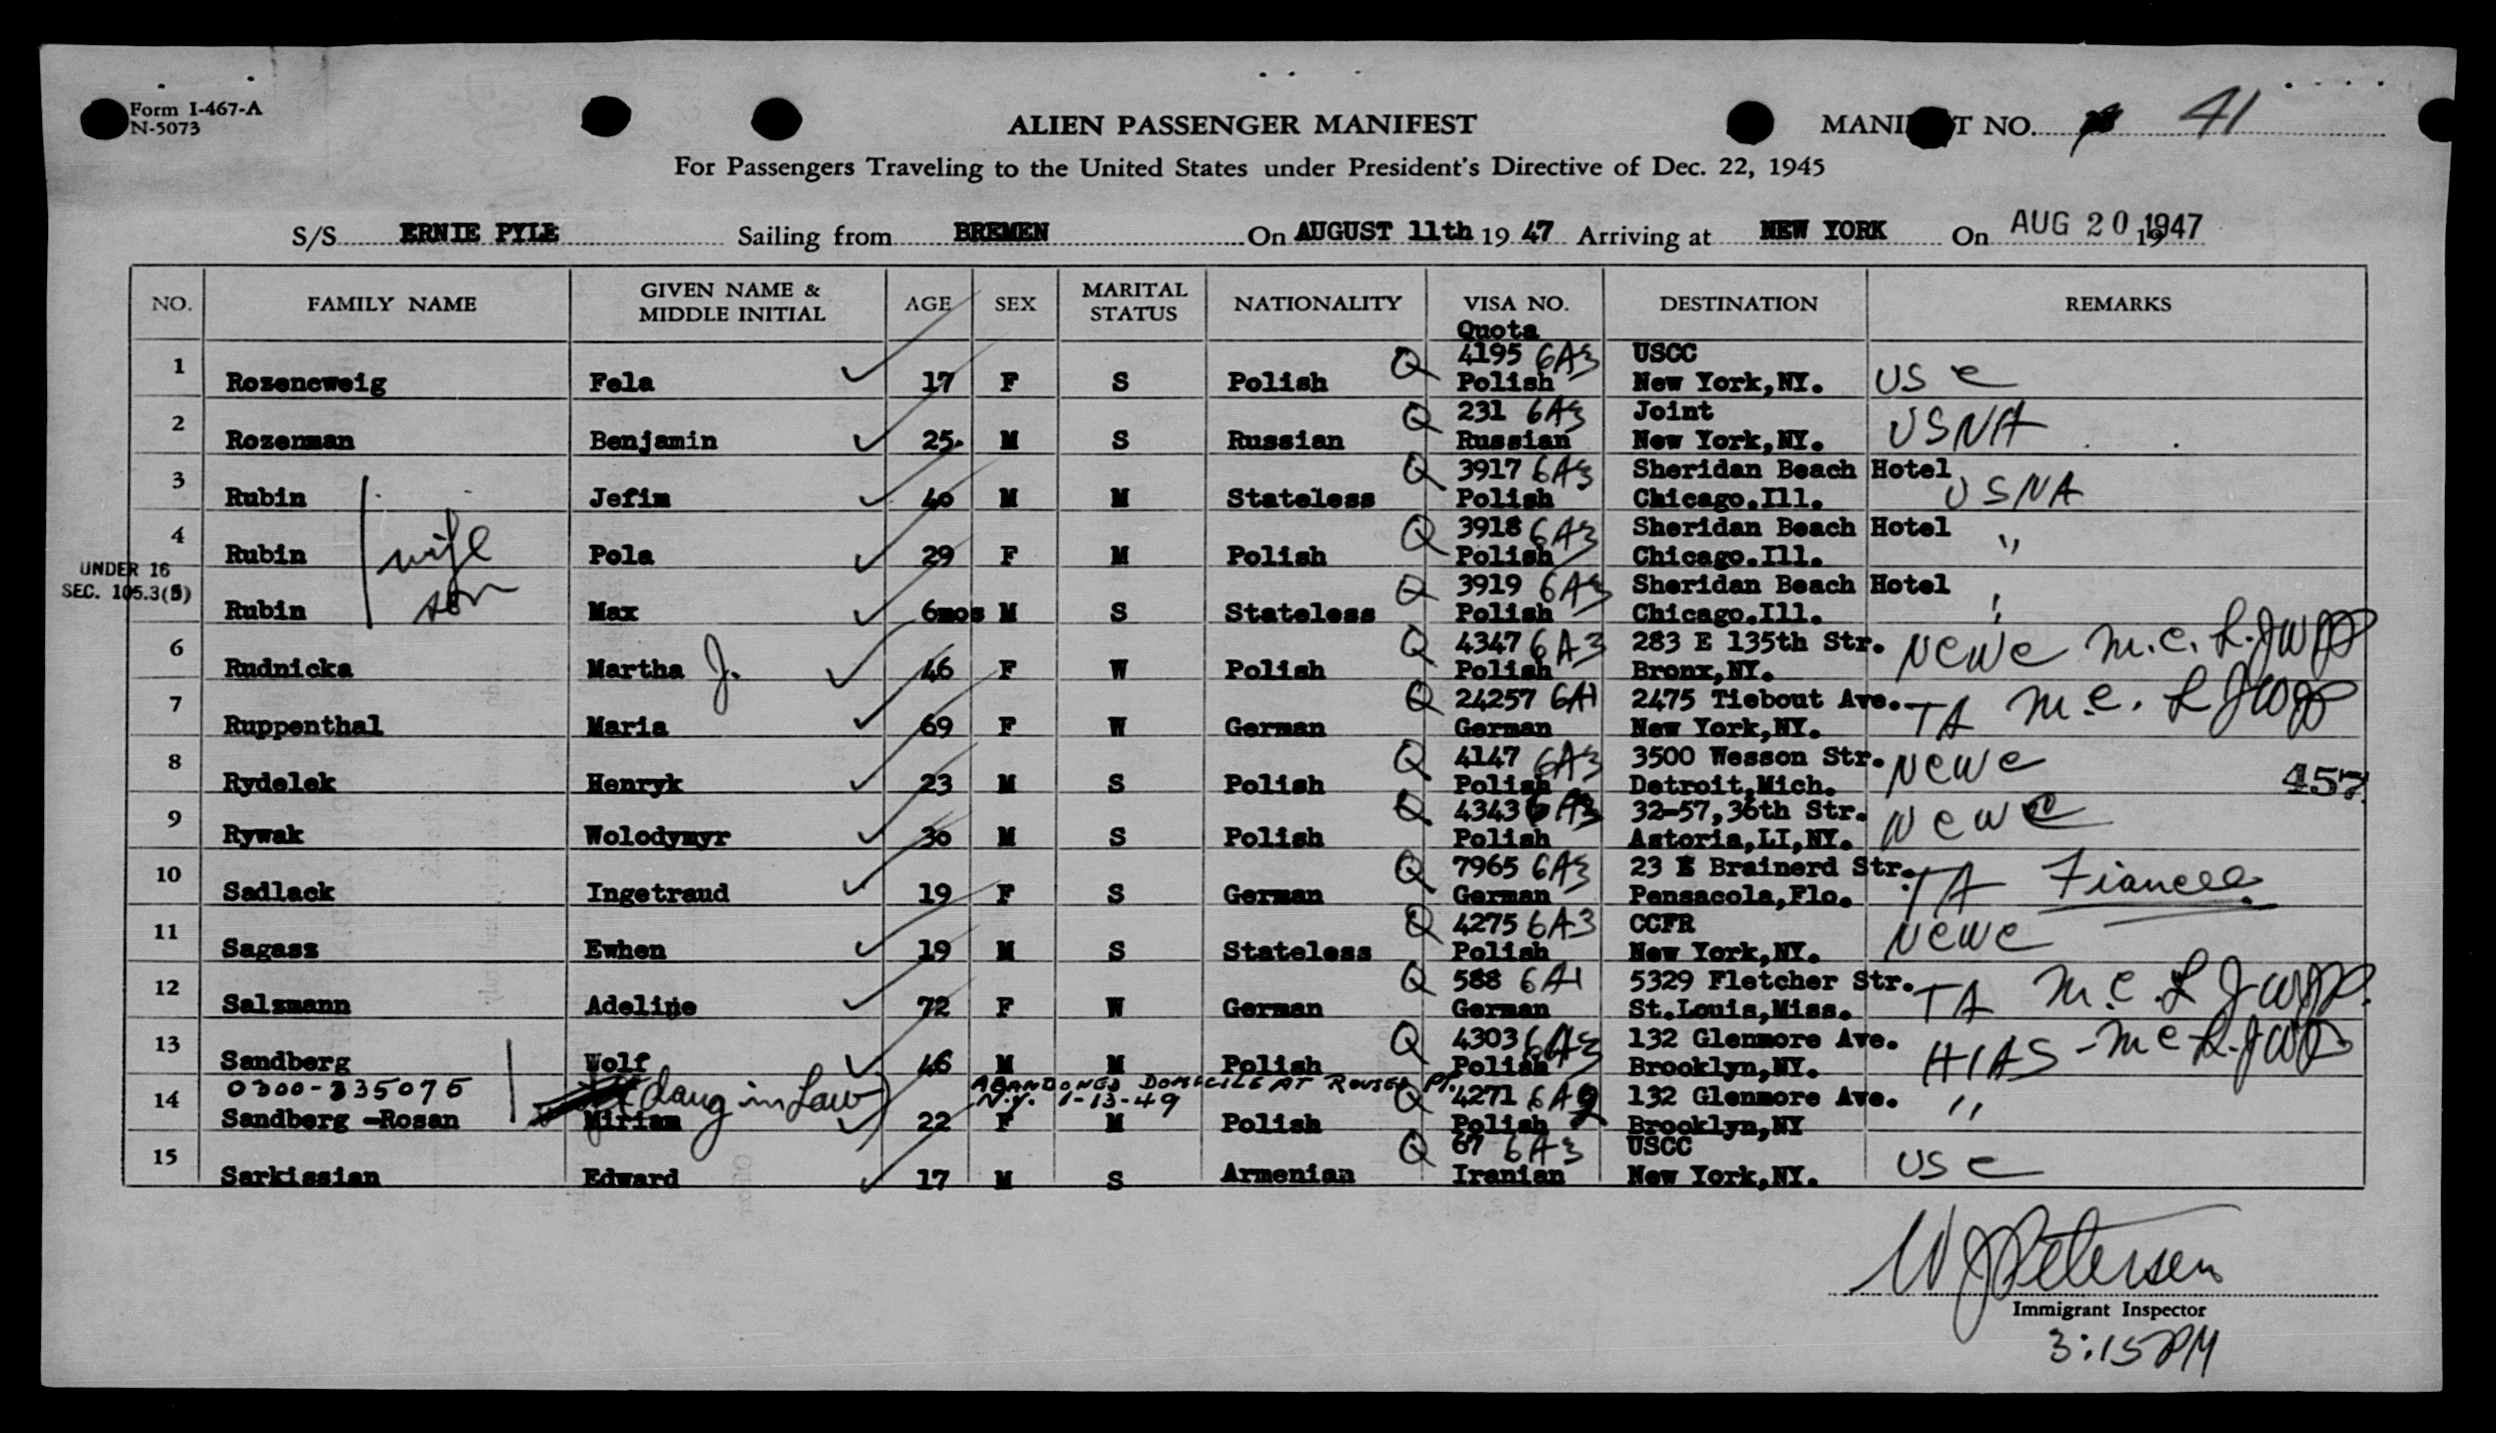 Form I-467-A
N-5073
ALIEN PASSENGER MANIFEST
MANIFEST NO. 41
For Passengers Traveling to the United States under President's Directive of Dec. 22, 1945
S/S ERNIE PYLE Sailing from BREMEN On AUGUST 11th 19 47 Arriving at NEW YORK On AUG 20 1947
NO. FAMILY NAME GIVEN NAME & MIDDLE INITIAL AGE SEX MARITAL STATUS NATIONALITY VISA NO. DESTINATION REMARKS
Quota
1 Rozencweig Fela 17 F S Polish Q 4195 6A3 Polish USCC New York,NY. US C
2 Rozenman Benjamin 25. M S Russian Q 231 6A3 Russian Joint New York,NY. USNA
3 Rubin Jefim 40 M M Stateless Q 3917 6A3 Polish Sheridan Beach Hotel Chicago.Ill. USNA
4 Rubin wife Pola 29 F M Polish Q 3918 6A3 Polish Sheridan Beach Hotel Chicago.Ill. "
UNDER 16
SEC. 105.3(5)
Rubin son Max 6mos M S Stateless Q 3919 6A3 Polish Sheridan Beach Hotel Chicago.Ill. "
6 Rudnicka Martha J. 46 F W Polish Q 4347 6A3 Polish 283 E 135th Str. Bronx,NY. NCWC
7 Ruppenthal Maria 69 F W German Q 24257 6A1 German 2475 Tiebout Ave. New York,NY. TA
8 Rydelek Henryk 23 M S Polish Q 4147 6A3 Polish 3500 Wesson Str. Detroit,Mich. NCWC 457
9 Rywak Wolodymyr 30 M S Polish Q 4343 6A3 Polish 32-57,36th Str. Astoria,LI,NY. NCWC
10 Sadlack Ingetraud 19 F S German Q 7965 6A3 German 23 E Brainerd Str. Pensacola,Flo. TA Fiancee
11 Sagasz Ewhen 19 M S Stateless Q 4275 6A3 Polish CCFR New York,NY. NCWC
12 Salzmann Adeline 72 F W German Q 588 6A1 German 5329 Fletcher Str. St.Louis,Miss. TA
13 Sandberg Wolf 46 M M Polish Q 4303 6A3 Polish 132 Glenmore Ave. Brooklyn,NY. HIAS
0300-335075 (daug in Law) ABANDONED DOMICILE AT ROUSES PT. N.Y. 1-13-49
14 Sandberg -Rosan Miriam 22 F M Polish Q 4271 6A2 Polish 132 Glenmore Ave. Brooklyn,NY "
15 Sarkissian Edward 17 M S Armenian Q 67 6A3 Iranian USCC New York,NY. US C
W J Petersen
Immigrant Inspector
3:15 PM